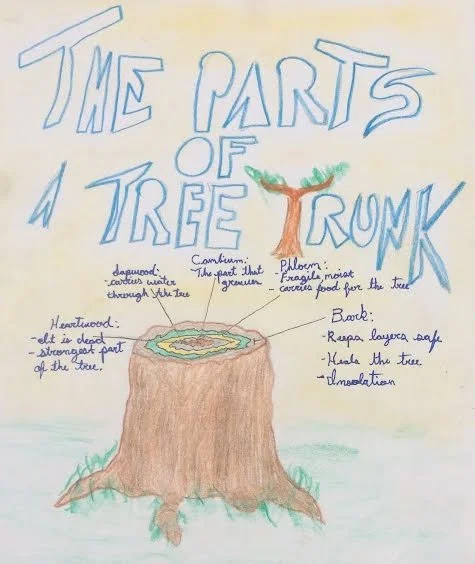 THE PARTS
OF
A TREE TRUNK
Cambium:
The part that
grows
Phloem:
-Fragile, moist
- carries food for the tree
Sapwood:
-carries water
through the tree
Heartwood:
- It is dead
- strongest part
of the tree.
Bark:
-Keeps layers safe
-Heals the tree
-Insolation